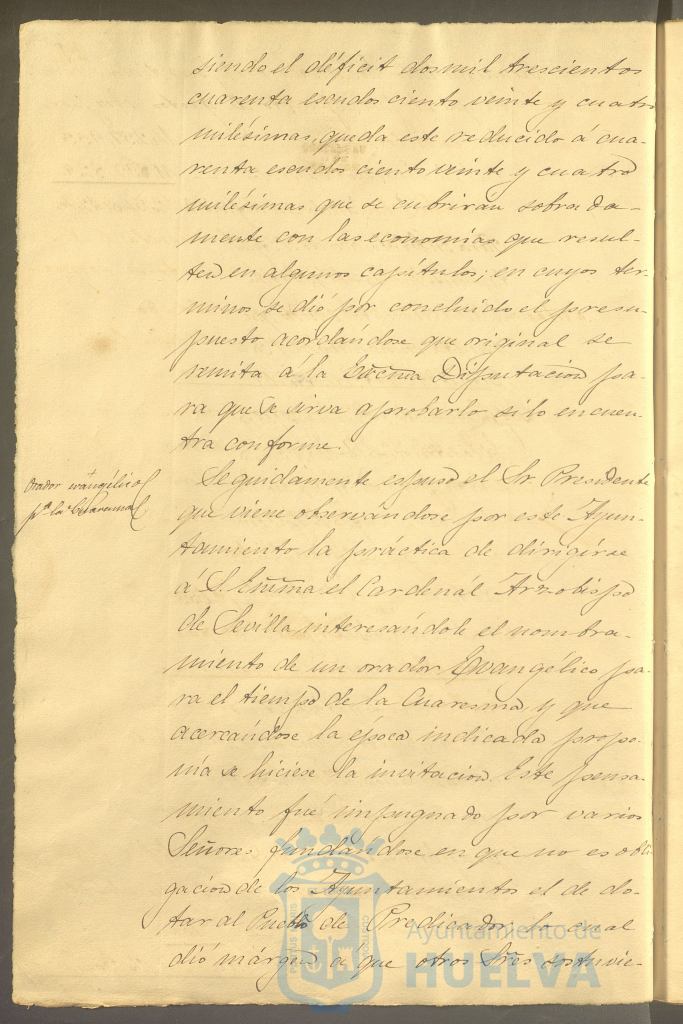 siendo el déficit dosmil trescientos
cuarenta escudos ciento veinte y cuatro
milésimas, queda este reducido á cua-
renta escudos ciento veinte y cuatro
milésimas que se cubrirán sobrada-
mente con las economías que resul-
ten en algunos capítulos; en cuyos ter-
minos se dió por concluido el presu-
puesto acordándose que original se
remita á la Excma Diputacion pa-
ra que se sirva aprobarlo si lo encuen-
tra conforme.
Orador evangélico
pa la Cuaresma
Seguidamente espuso el Sr Presidente
que viene observándose por este Ayun-
tamiento la práctica de dirigirse
á S. Emma el Cardenál Arzobispo
de Sevilla interesándole el nombra-
miento de un orador Evangélico pa-
ra el tiempo de la Cuaresma y que
acercándose la época indicada propo-
nía se hiciese la invitacion. Este pensa-
miento fué impugnado por varios
Señores fundándose en que no es obli-
gacion de los Ayuntamientos el de do-
tar al Pueblo de Predicador, lo cual
dió márgen á que otros Sres sostuvie-
Ayuntamiento de
HUELVA